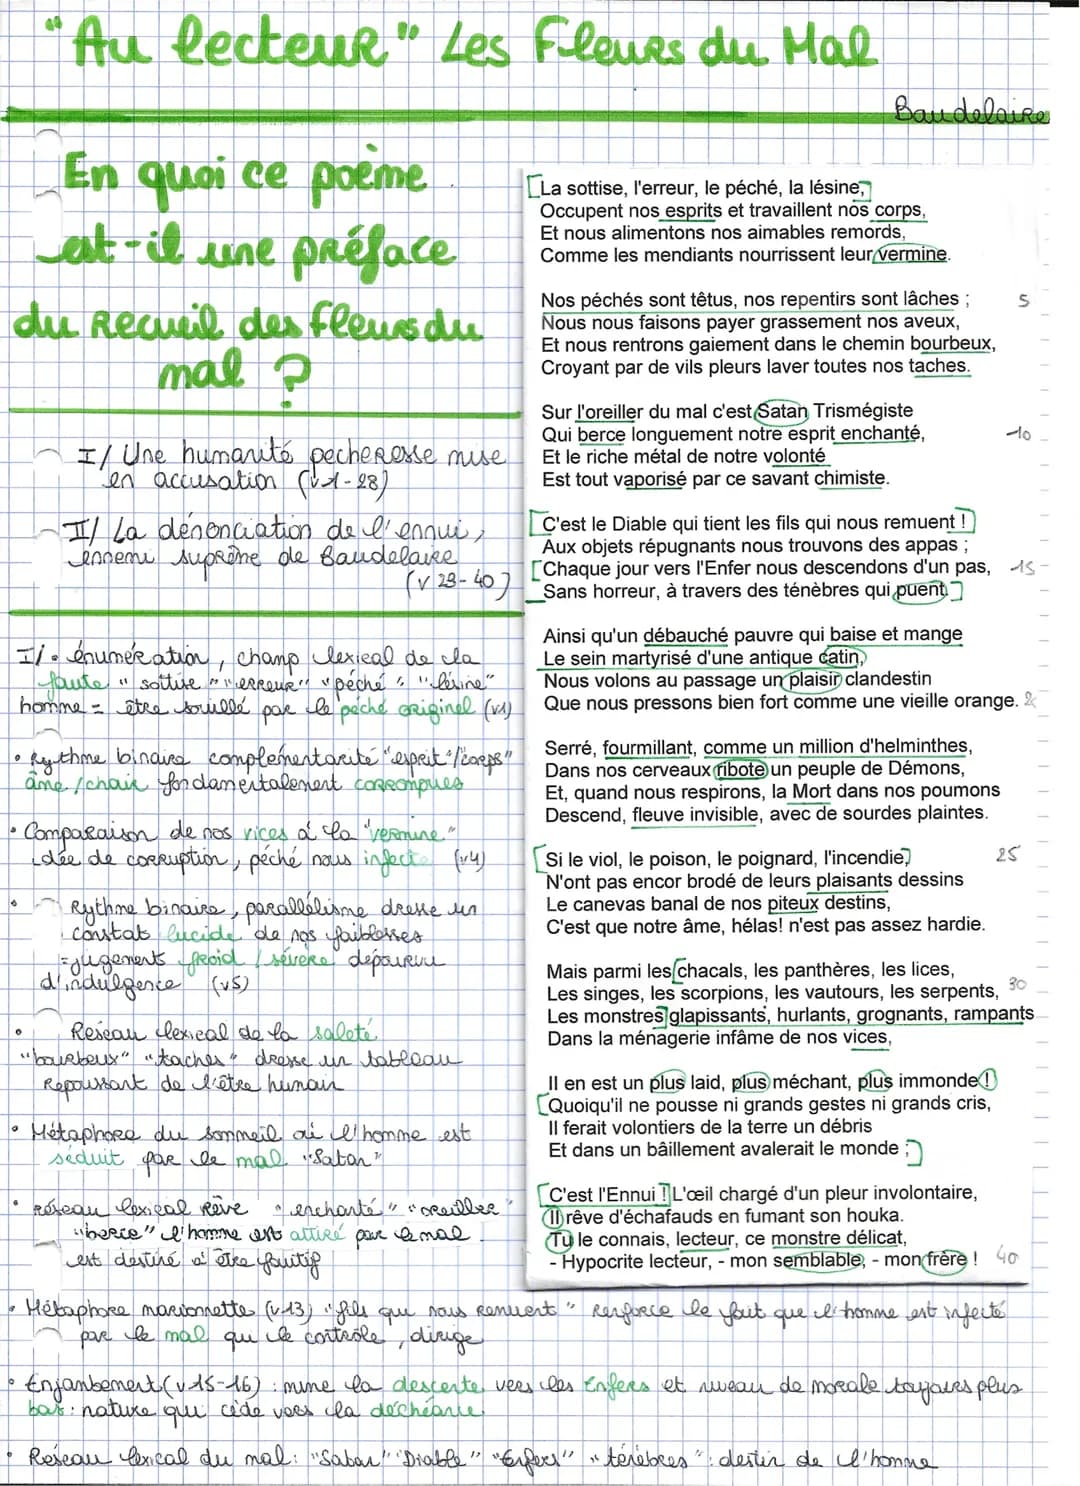 "Au lecteur" Les Fleurs du Mal
Baudelaire
En quoi ce poème
est-il une préface
du recueil des fleurs du
mal ?
I/ Une humanité pecheresse mise
en accusation (v1-28)
II/ La dénonciation de l'ennui,
ennemi suprême de Baudelaire
(v 29-40)
La sottise, l'erreur, le péché, la lésine,
Occupent nos esprits et travaillent nos corps,
Et nous alimentons nos aimables remords,
Comme les mendiants nourrissent leur vermine.
Nos péchés sont têtus, nos repentirs sont lâches ; 5
Nous nous faisons payer grassement nos aveux,
Et nous rentrons gaiement dans le chemin bourbeux,
Croyant par de vils pleurs laver toutes nos taches.
Sur l'oreiller du mal c'est Satan Trismégiste
Qui berce longuement notre esprit enchanté, 10
Et le riche métal de notre volonté
Est tout vaporisé par ce savant chimiste.
C'est le Diable qui tient les fils qui nous remuent !
Aux objets répugnants nous trouvons des appas ;
Chaque jour vers l'Enfer nous descendons d'un pas, 15
Sans horreur, à travers des ténèbres qui puent.
Ainsi qu'un débauché pauvre qui baise et mange
Le sein martyrisé d'une antique catin,
Nous volons au passage un plaisir clandestin
Que nous pressons bien fort comme une vieille orange.
Serré, fourmillant, comme un million d'helminthes,
Dans nos cerveaux ribote un peuple de Démons,
Et, quand nous respirons, la Mort dans nos poumons
Descend, fleuve invisible, avec de sourdes plaintes.
Si le viol, le poison, le poignard, l'incendie, 25
N'ont pas encor brodé de leurs plaisants dessins
Le canevas banal de nos piteux destins,
C'est que notre âme, hélas! n'est pas assez hardie.
Mais parmi les chacals, les panthères, les lices,
Les singes, les scorpions, les vautours, les serpents, 30
Les monstres glapissants, hurlants, grognants, rampants
Dans la ménagerie infâme de nos vices,
Il en est un plus laid, plus méchant, plus immonde !
Quoiqu'il ne pousse ni grands gestes ni grands cris,
Il ferait volontiers de la terre un débris
Et dans un bâillement avalerait le monde ;
C'est l'Ennui ! L'œil chargé d'un pleur involontaire,
Il rêve d'échafauds en fumant son houka.
Tu le connais, lecteur, ce monstre délicat,
- Hypocrite lecteur, - mon semblable, - mon frère ! 40
I/ • énumération, champ lexical de la
faute "sottise" "erreur" "péché" "lésine"
homme = être souillé par le péché originel (v1)
• Rythme binaire complémentarité "esprit"/"corps"
âme/chair fondamentalement corrompues
• Comparaison de nos vices à la "vermine"
idée de corruption, péché nous infecte (v4)
• Rythme binaire, parallélisme dresse un
constat lucide de nos faiblesses
= jugements froid / sévère dépourvu
d'indulgence (v5)
• Réseau lexical de la saleté
"bourbeux" "taches" dresse un tableau
repoussant de l'être humain
• Métaphore du sommeil où l'homme est
séduit par le mal "Satan"
• réseau lexical rêve "enchanté" "oreiller"
"berce" l'homme est attiré par le mal
est destiné à être fautif
• Métaphore marionnette (v13) "fils qui nous remuent" renforce le fait que l'homme est infecté
par le mal qui le contrôle, dirige
• Enjambement (v15-16) : mime la descente vers les Enfers et niveau de morale toujours plus
bas : nature qui cède vers la déchéance
• Réseau lexical du mal : "Satan" "Diable" "Enfers" "ténèbres" : destin de l'homme